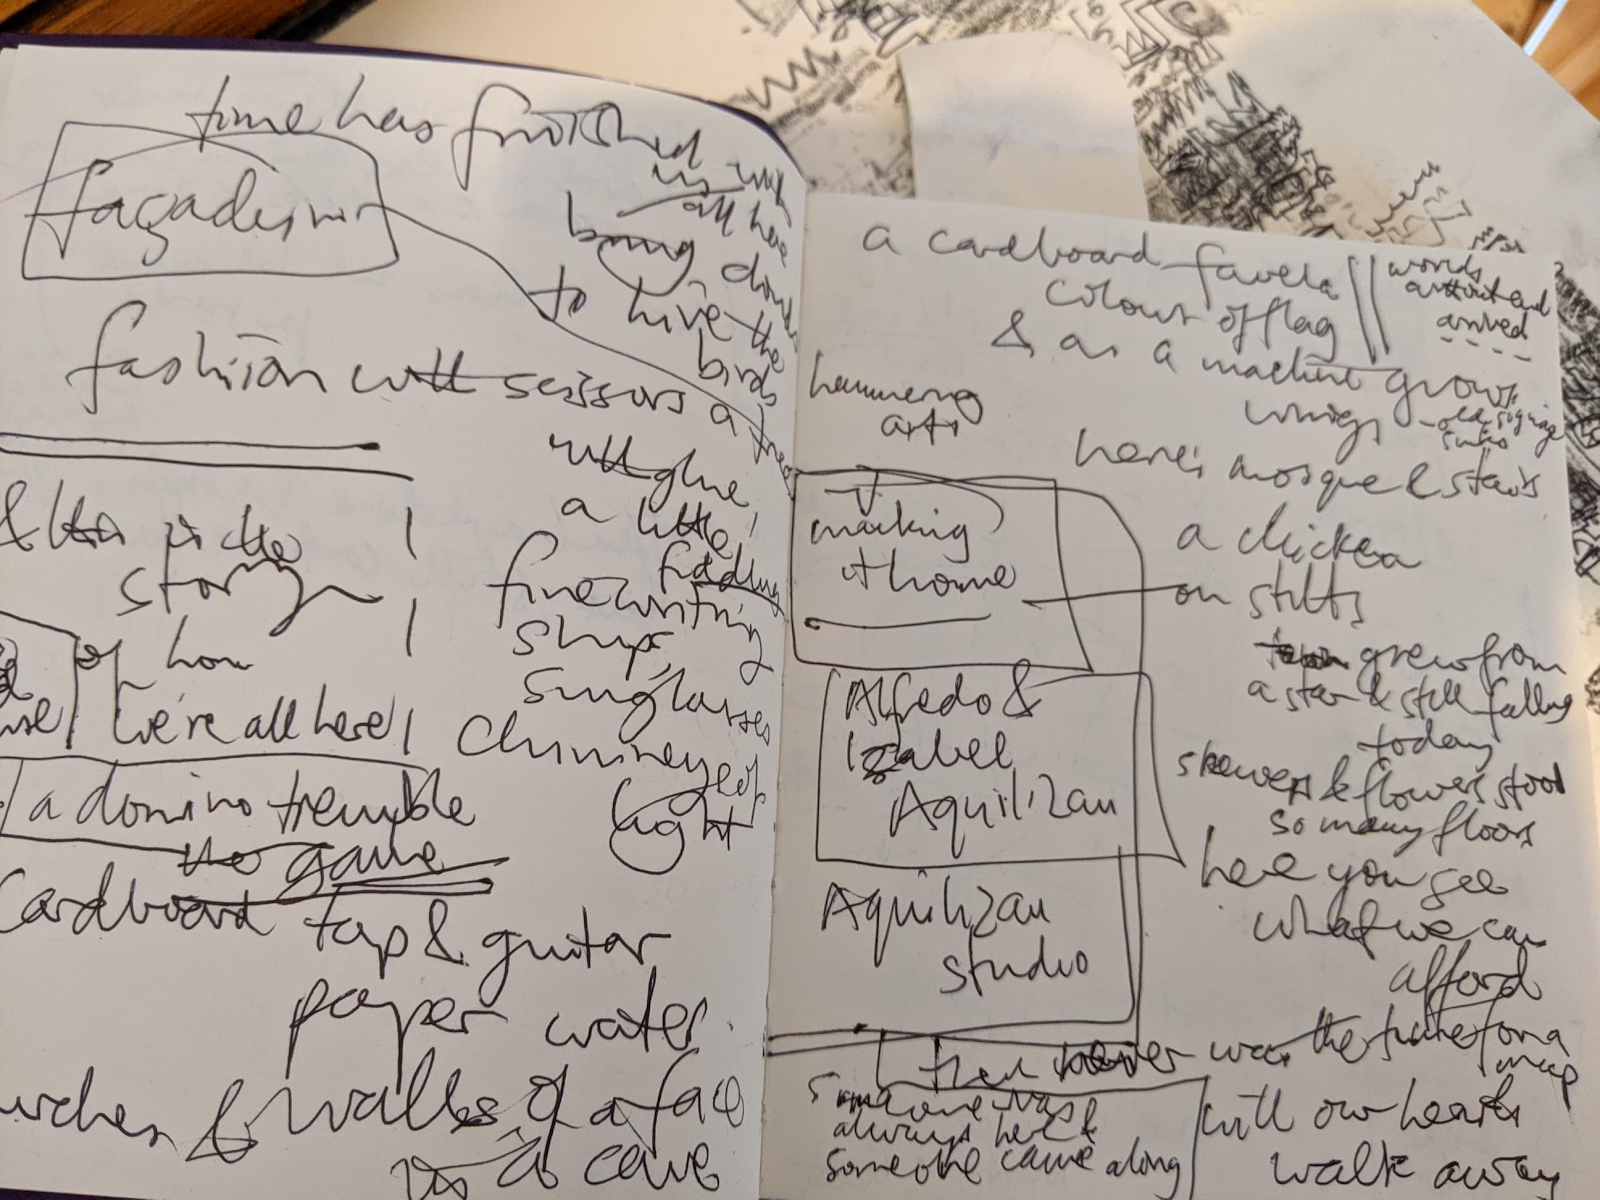 time has finished with
us all here
façadism
bring down
to hive the
birds
fashion with scissors a tree
with glue
a little
fiddling
fine writing
ships
sunglasses
chimney of
light
story
of how
we're all here
a domino tremble
the game
Cardboard tap & guitar
paper water
& walls of a face
a cave
a cardboard favela
colour of flag
& as a machine grows
wings
words
without end
arrived
hammering
arts
here's mosque & stairs
making
home
a chicken
on stilts
grew from
a star & still falling
today
Alfredo &
Izabel
Aquilizan
skewers & flowers stood
so many floors
here you see
what we can
afford
Aquilizan
studio
there never was the time for a
map
someone was
always here &
someone came along
with our hearts
walk away